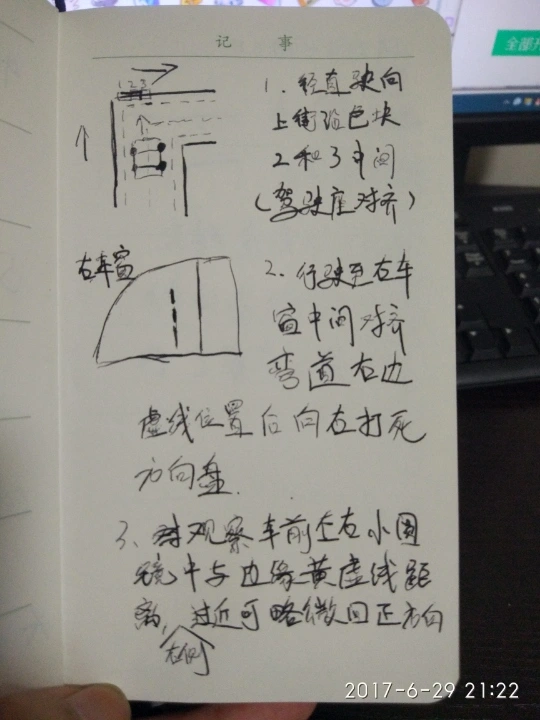 全部开
记 事
1 2 3
1. 径直驶向
上街沿色块
2和3中间
(驾驶座对齐)
右车窗
2. 行驶至右车
窗中间对齐
弯道右边
虚线位置后向右打死
方向盘.
3、观察车前左右小圆
镜中与边缘黄虚线距
离,过近可略微回正方向
右侧
2017-6-29 21:22